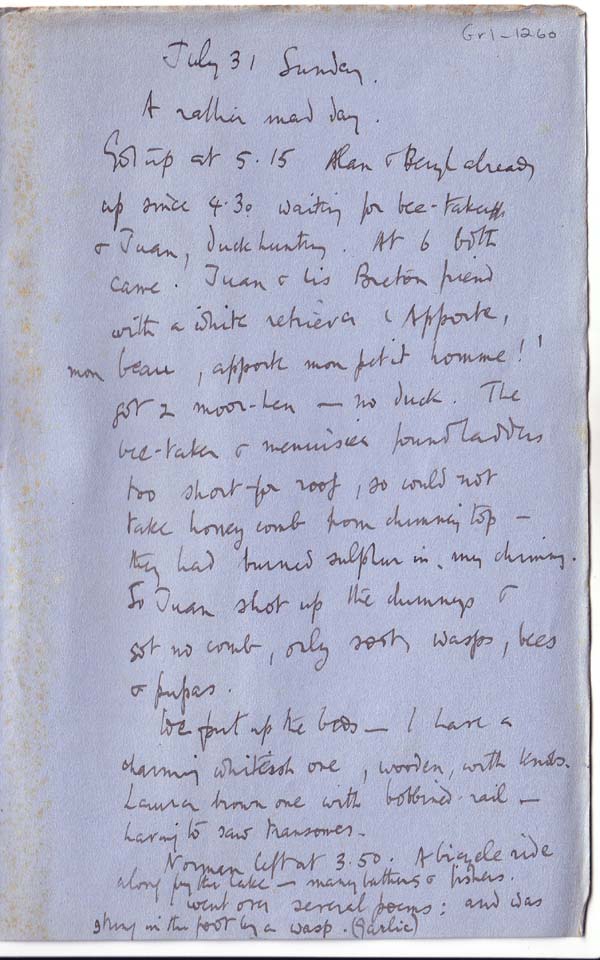 Gr1-1260
July 31 Sunday.
A rather mad day.
Got up at 5.15 Alan & Beryl already
up since 4.30 waiting for bee-takers
& Juan, duck hunting. At 6 both
came. Juan & his Breton friend
with a white retriever (Apporte,
mon beau, apporte mon petit homme!'
got 2 moor-hen — no duck. The
bee-taker & menuisier found ladders
too short for roof, so could not
take honey comb from chimney top —
they had burned sulphur in my chimney.
So Juan shot up the chimneys &
got no comb, only sooty wasps, bees
& pupas.
We put up the beds — I have a
charming whitish one, wooden, with knobs.
Laura brown one with bobbined rail —
having to saw transomes.
Norman left at 3.50. A bicycle ride
along by the lake — many bathers & fishers.
went over several poems: and was
stung in the foot by a wasp. (Garlic)